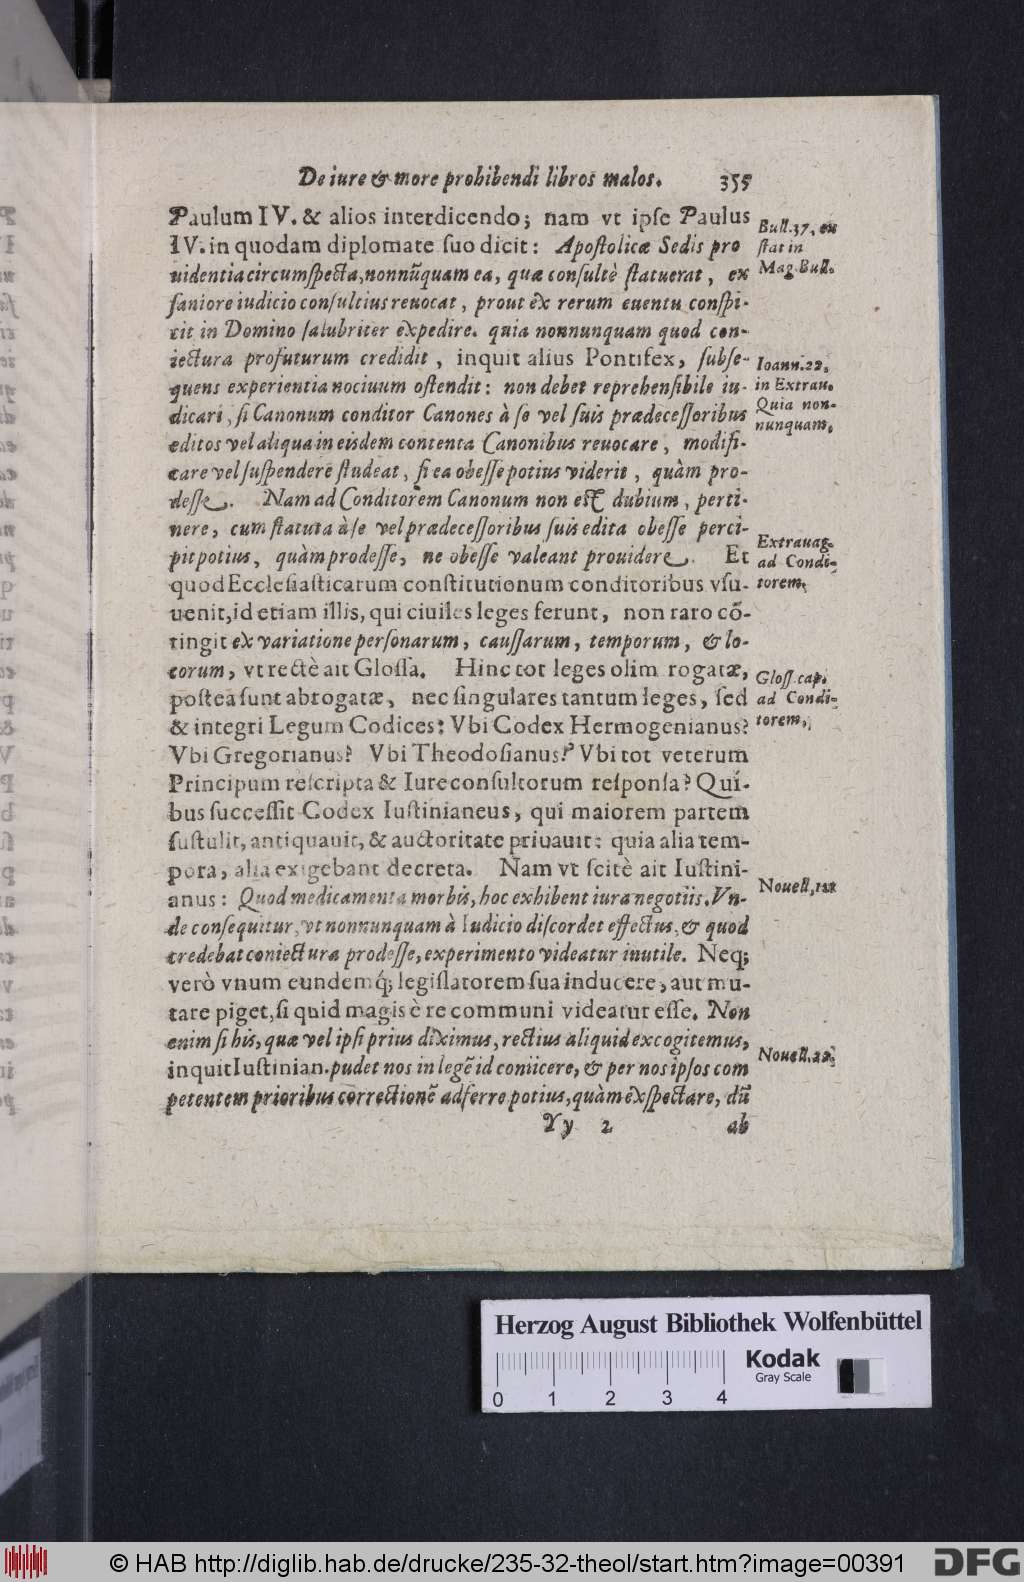 De iure & more prohibendi libros malos. 355
Paulum IV. & alios interdicendo; nam vt ipſe Paulus
IV. in quodam diplomate ſuo dicit: Apoſtolicæ Sedis pro
uidentia circumſpecta, nonnũquam ea, quæ conſultè ſtatuerat, ex
ſaniore iudicio conſultius reuocat, prout ex rerum euentu conſpi-
cit in Domino ſalubriter expedire. quia nonnunquam quod con-
iectura profuturum credidit, inquit alius Pontifex, ſubſe-
quens experientia nociuum oſtendit: non debet reprehenſibile iu-
dicari, ſi Canonum conditor Canones à ſe vel ſuis prædeceſſoribus
editos vel aliqua in eisdem contenta Canonibus reuocare, modifi-
care vel ſuſpendere ſtudeat, ſi ea obeſſe potius viderit, quàm pro-
deſſe. Nam ad Conditorem Canonum non eſt dubium, perti-
nere, cum ſtatuta à ſe vel prædeceſſoribus ſuis edita obeſſe perci-
pit potius, quàm prodeſſe, ne obeſſe valeant prouidere. Et
quod Eccleſiaſticarum conſtitutionum conditoribus vſu-
uenit, id etiam illis, qui ciuiles leges ferunt, non raro cõ-
tingit ex variatione perſonarum, cauſſarum, temporum, & lo-
corum, vt rectè ait Gloſſa. Hinc tot leges olim rogatæ,
poſtea ſunt abrogatæ, nec ſingulares tantum leges, ſed
& integri Legum Codices: Vbi Codex Hermogenianus?
Vbi Gregorianus? Vbi Theodoſianus? Vbi tot veterum
Principum reſcripta & Iureconſultorum reſponſa? Qui-
bus ſucceſſit Codex Iuſtinianeus, qui maiorem partem
ſuſtulit, antiquauit, & auctoritate priuauit: quia alia tem-
pora, alia exigebant decreta. Nam vt ſcitè ait Iuſtini-
anus: Quod medicamenta morbis, hoc exhibent iura negotiis. Vn-
de conſequitur, vt nonnunquam à Iudicio diſcordet effectus, & quod
credebat coniectura prodeſſe, experimento videatur inutile. Neq;
verò vnum eundemq́; legiſlatorem ſua inducere, aut mu-
tare piget, ſi quid magis è re communi videatur eſſe. Non
enim ſi his, quæ vel ipſi prius diximus, rectius aliquid excogitemus,
inquit Iuſtinian. pudet nos in legẽ id coniicere, & per nos ipſos com
petentem prioribus correctionẽ adferre potius, quàm exſpectare, dũ
Yy 2 ab
Bull. 37, ex
ſtat in
Mag. Bull.
Ioann. 22.
in Extrau.
Quia non-
nunquam.
Extrauag.
ad Condi-
torem.
Gloſſ. cap.
ad Condi-
torem.
Nouell. 111
Nouell. 22.
Herzog August Bibliothek Wolfenbüttel
Kodak
Gray Scale
0 1 2 3 4
© HAB http://diglib.hab.de/drucke/235-32-theol/start.htm?image=00391
DFG